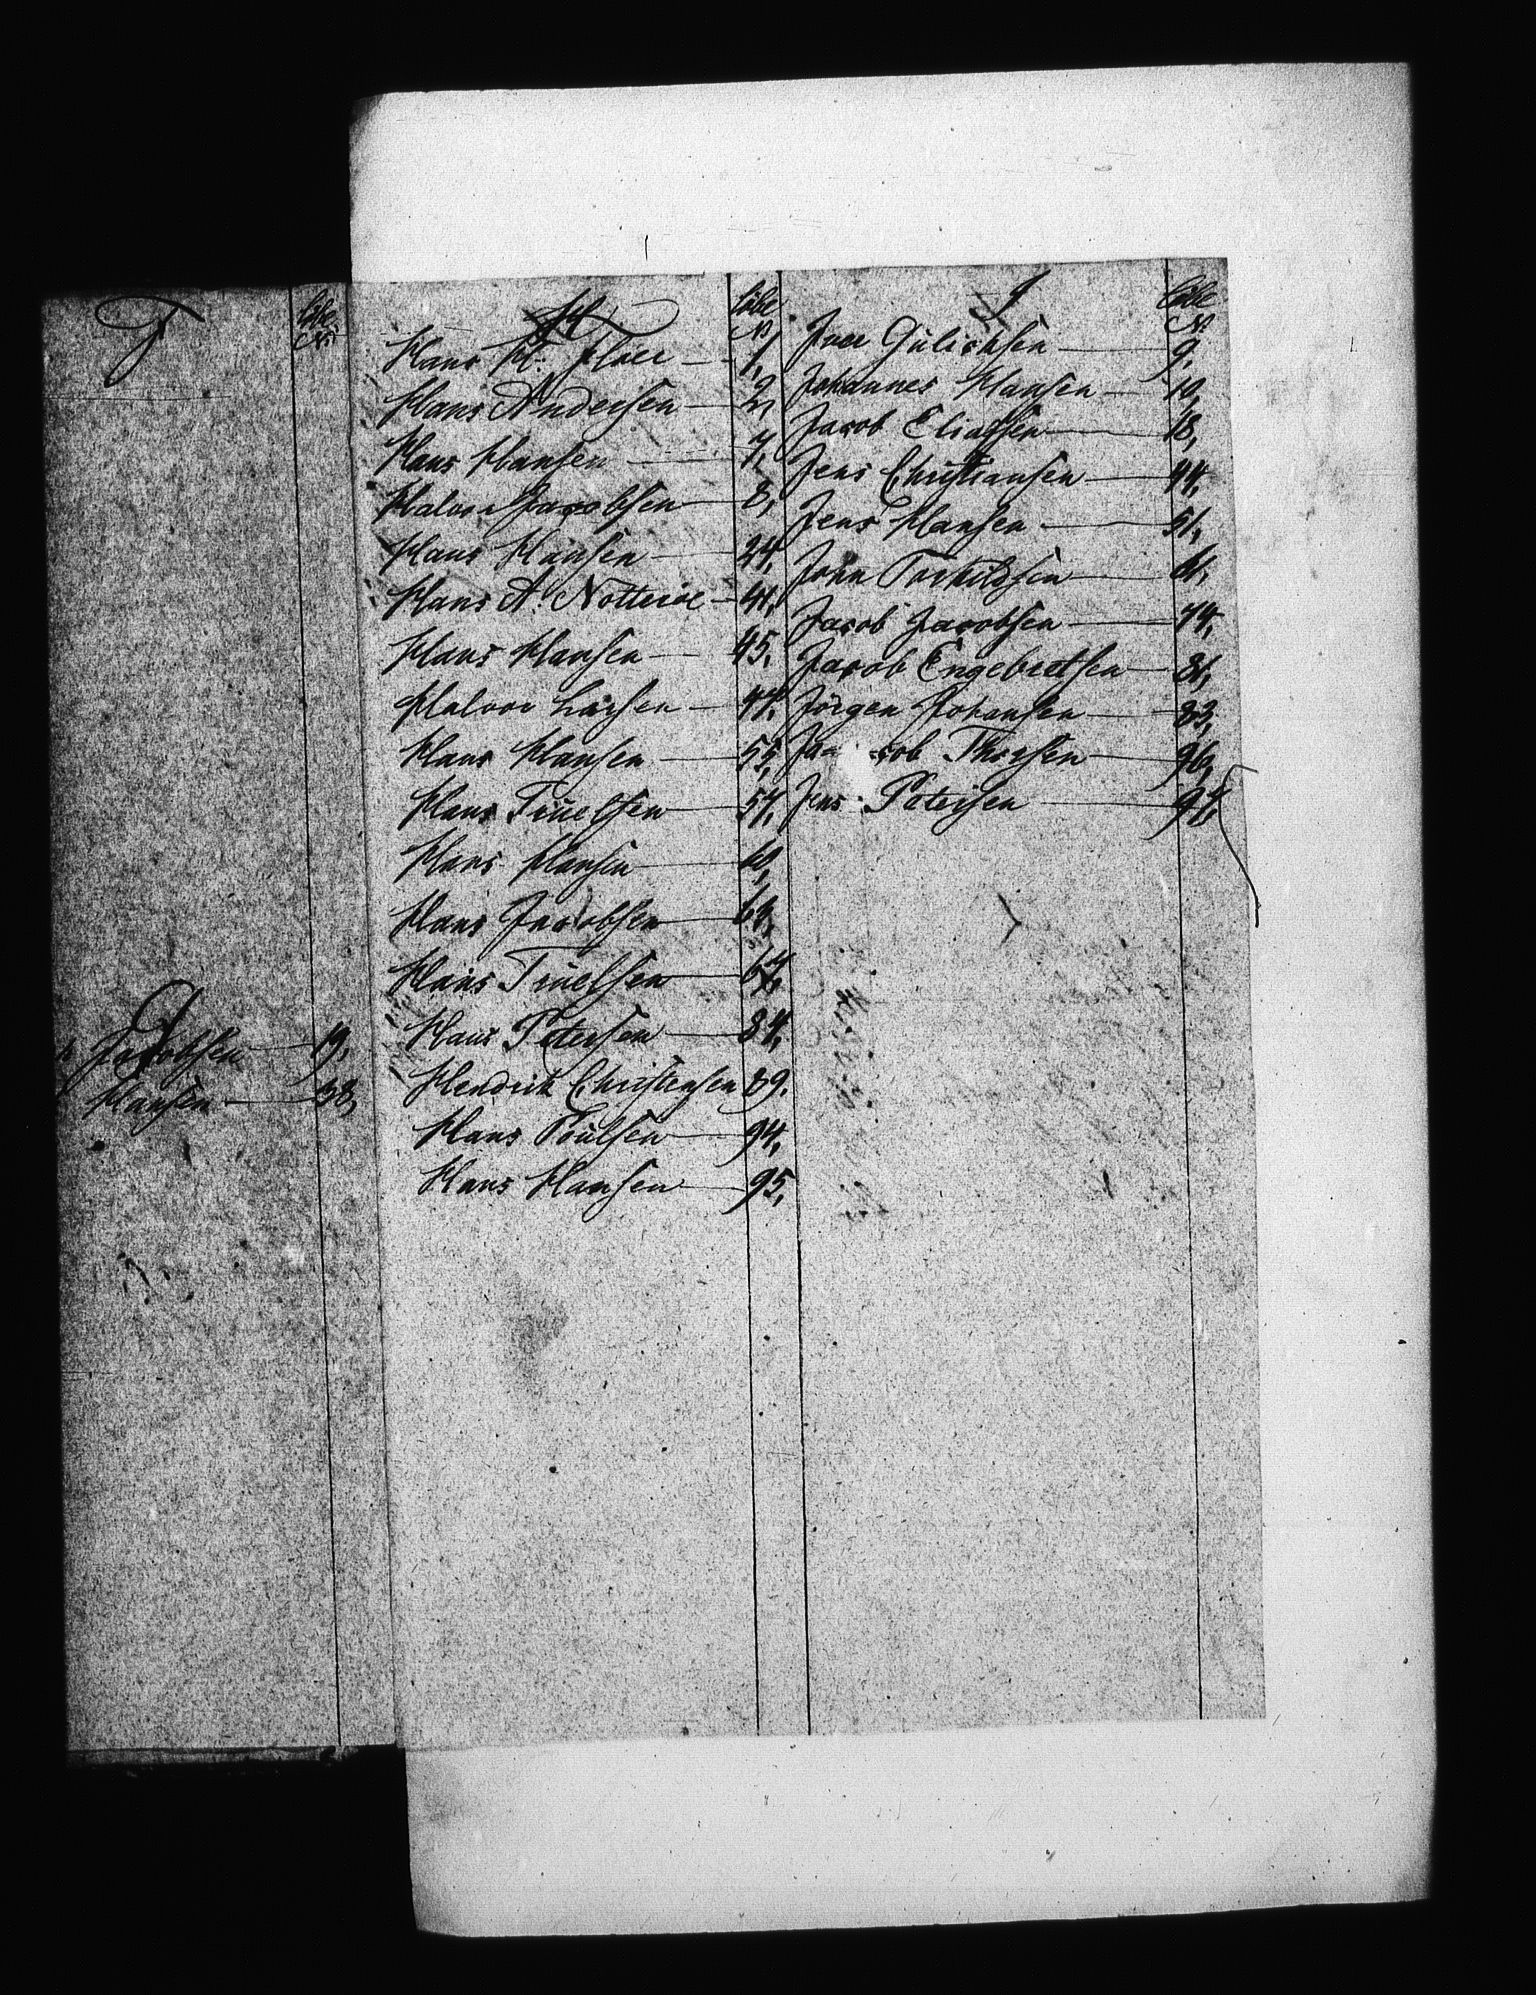 F
Löbe
No
G
Jacobsen — 19,
Hansen — 38,
H
Löbe
No
Hans H: Floer — 1,
Hans Andersen — 2,
Hans Hansen — 7,
Halvor Jacobsen — 8,
Hans Hansen — 24,
Hans A: Nötteröe — 41,
Hans Hansen — 45,
Halvor Larsen — 47,
Hans Hansen — 55,
Hans Truelsen — 57,
Hans Hansen — 60,
Hans Jacobsen — 63,
Hans Truelsen — 67,
Hans Petersen — 84,
Hendrik Christensen 89.
Hans Poulsen — 94,
Hans Hansen — 95,
I
Löbe
No
Iver Gulichsen — 9.
Johannes Hansen — 10,
Jacob Eliassen — 18,
Jens Christiansen — 44,
Jens Hansen — 51,
John Torkildsen — 61,
Jacob Jacobsen — 74,
Jacob Engebretsen — 81,
Jörgen Johansen — 83,
Jacob Thorsen — 96,
Jens Petersen — 97,